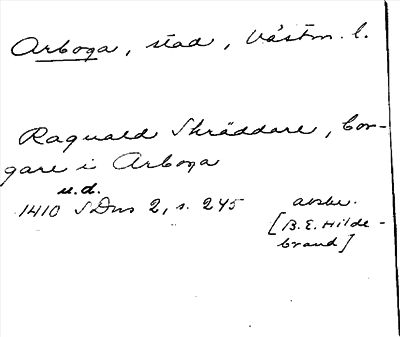 Arboga, stad, Västm. l.
Ragvald Skräddare, bor-
gare i Arboga
u.d.
1410 SDns 2, s. 245 avskr.
[B.E. Hilde-
brand]